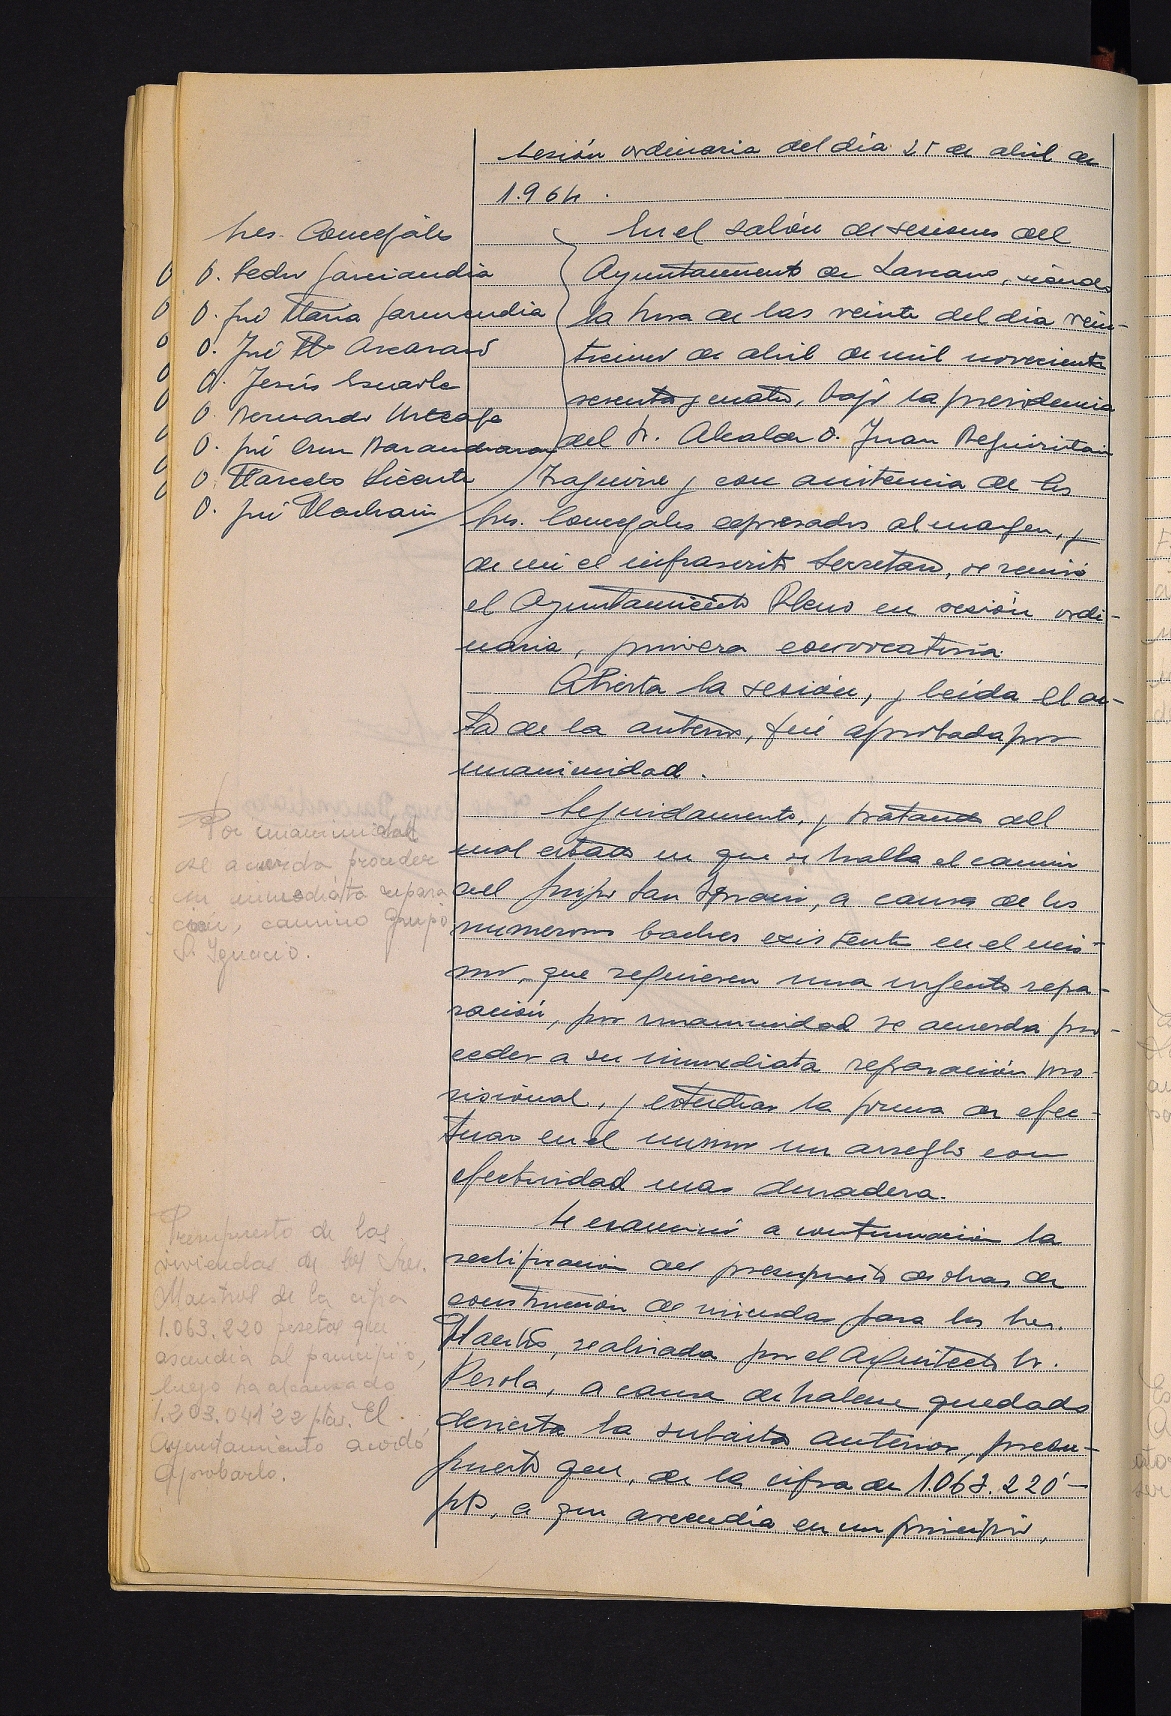 Sesión ordinaria del día 25 de abril de
1.964.
Sres. Concejales
D. Pedro Garciandia
D. José María Garmendia
D. José Mª Ascarasó
D. Jesús
D. Bernardo Urteaga
D. José Cruz Barandiaran
D. Marcelo Vicente
D. José
En el salón de sesiones del
Ayuntamiento de Lazcano, siendo
la hora de las veinte del día vein-
ticinco de abril de mil novecientos
sesenta y cuatro, bajo la presidencia
del Sr. Alcalde D. Juan Beguiristain
Izaguirre y con asistencia de los
Sres. Concejales expresados al margen, y
de mi el infrascrito Secretario, se reunió
el Ayuntamiento Pleno en sesión ordi-
naria, primera convocatoria.
Abierta la sesión, y leída el ac-
ta de la anterior, fué aprobada por
unanimidad.
Por unanimidad
se acuerda proceder
en inmediata repara
ción, camino grupo
S. Ignacio.
Seguidamente, y tratando del
mal estado en que se halla el camino
del grupo San Ignacio, a causa de los
numerosos baches existentes en el mis-
mo, que requieren una urgente repa-
ración, por unanimidad se acuerda pro-
ceder a su inmediata reparación pro-
visional, y estudiar la forma de efec-
tuar en el mismo un arreglo con
efectividad mas duradera.
Presupuesto de las
viviendas de los Sres.
Maestros de la cifra
1.063.220 pesetas que
ascendia al principio,
luego ha alcanzado
1.203.041'22 ptas. El
Ayuntamiento acordó
aprobarlo.
Se examinó a continuación la
rectificación del presupuesto de obras de
construcción de viviendas para los Sres.
Maestros, realizada por el Arquitecto Sr.
Perola, a causa de haberse quedado
desierta la subasta anterior, presu-
puesto que, de la cifra de 1.063.220'-
pts, a que ascendia en un principio,